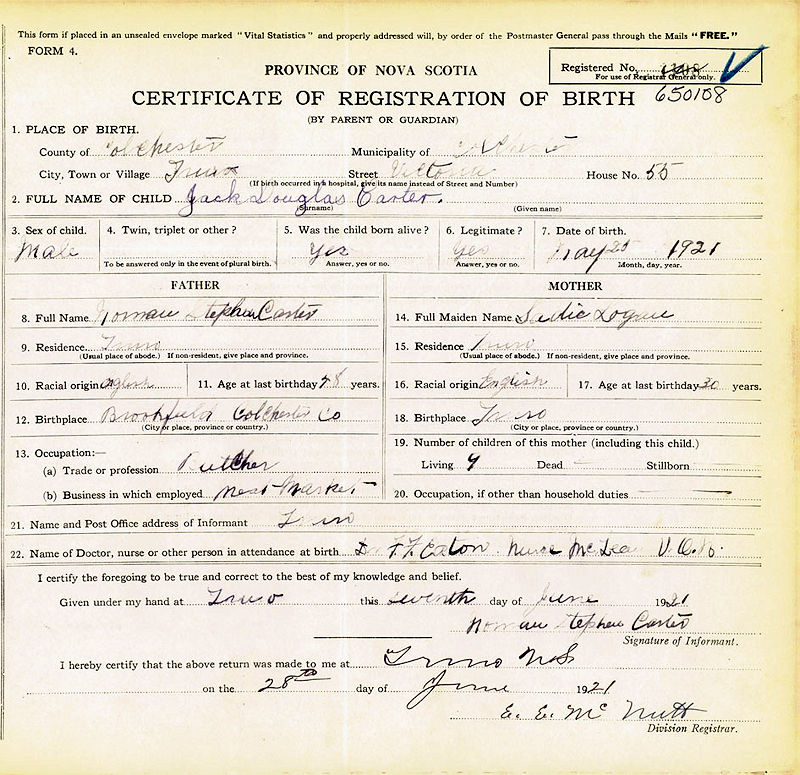 This form if placed in an unsealed envelope marked "Vital Statistics" and properly addressed will, by order of the Postmaster General pass through the Mails "FREE."
FORM 4.
Registered No.
For use of Registrar General only.
PROVINCE OF NOVA SCOTIA
CERTIFICATE OF REGISTRATION OF BIRTH 650108
(BY PARENT OR GUARDIAN)
1. PLACE OF BIRTH.
County of Colchester Municipality of Colchester
City, Town or Village Truro Street Victoria House No. 55
(If birth occurred in a hospital, give its name instead of Street and Number)
2. FULL NAME OF CHILD Jack Douglas Carter.
(Surname) (Given name)
3. Sex of child. 4. Twin, triplet or other ? 5. Was the child born alive ? 6. Legitimate ? 7. Date of birth.
Male Yes Yes May 25 1921
To be answered only in the event of plural birth. Answer, yes or no. Answer, yes or no. Month, day, year.
FATHER MOTHER
8. Full Name Norman Stephen Carter 14. Full Maiden Name Sadie Logue
9. Residence Truro 15. Residence Truro
(Usual place of abode.) If non-resident, give place and province. (Usual place of abode.) If non-resident, give place and province.
10. Racial origin English 11. Age at last birthday years. 16. Racial origin English 17. Age at last birthday 30 years.
12. Birthplace Brookfield Colchester Co 18. Birthplace Truro
(City or place, province or country.) (City or place, province or country.)
13. Occupation:— 19. Number of children of this mother (including this child.)
(a) Trade or profession Butcher Living Dead — Stillborn —
(b) Business in which employed Meat Market 20. Occupation, if other than household duties —
21. Name and Post Office address of Informant Truro
22. Name of Doctor, nurse or other person in attendance at birth Dr. F. F. Eaton. Nurse McLean V.O.N.
I certify the foregoing to be true and correct to the best of my knowledge and belief.
Given under my hand at Truro this seventh day of June 1921
Norman Stephen Carter
Signature of Informant.
I hereby certify that the above return was made to me at Truro N.S
on the 28th day of June 1921
E. E. McNutt
Division Registrar.